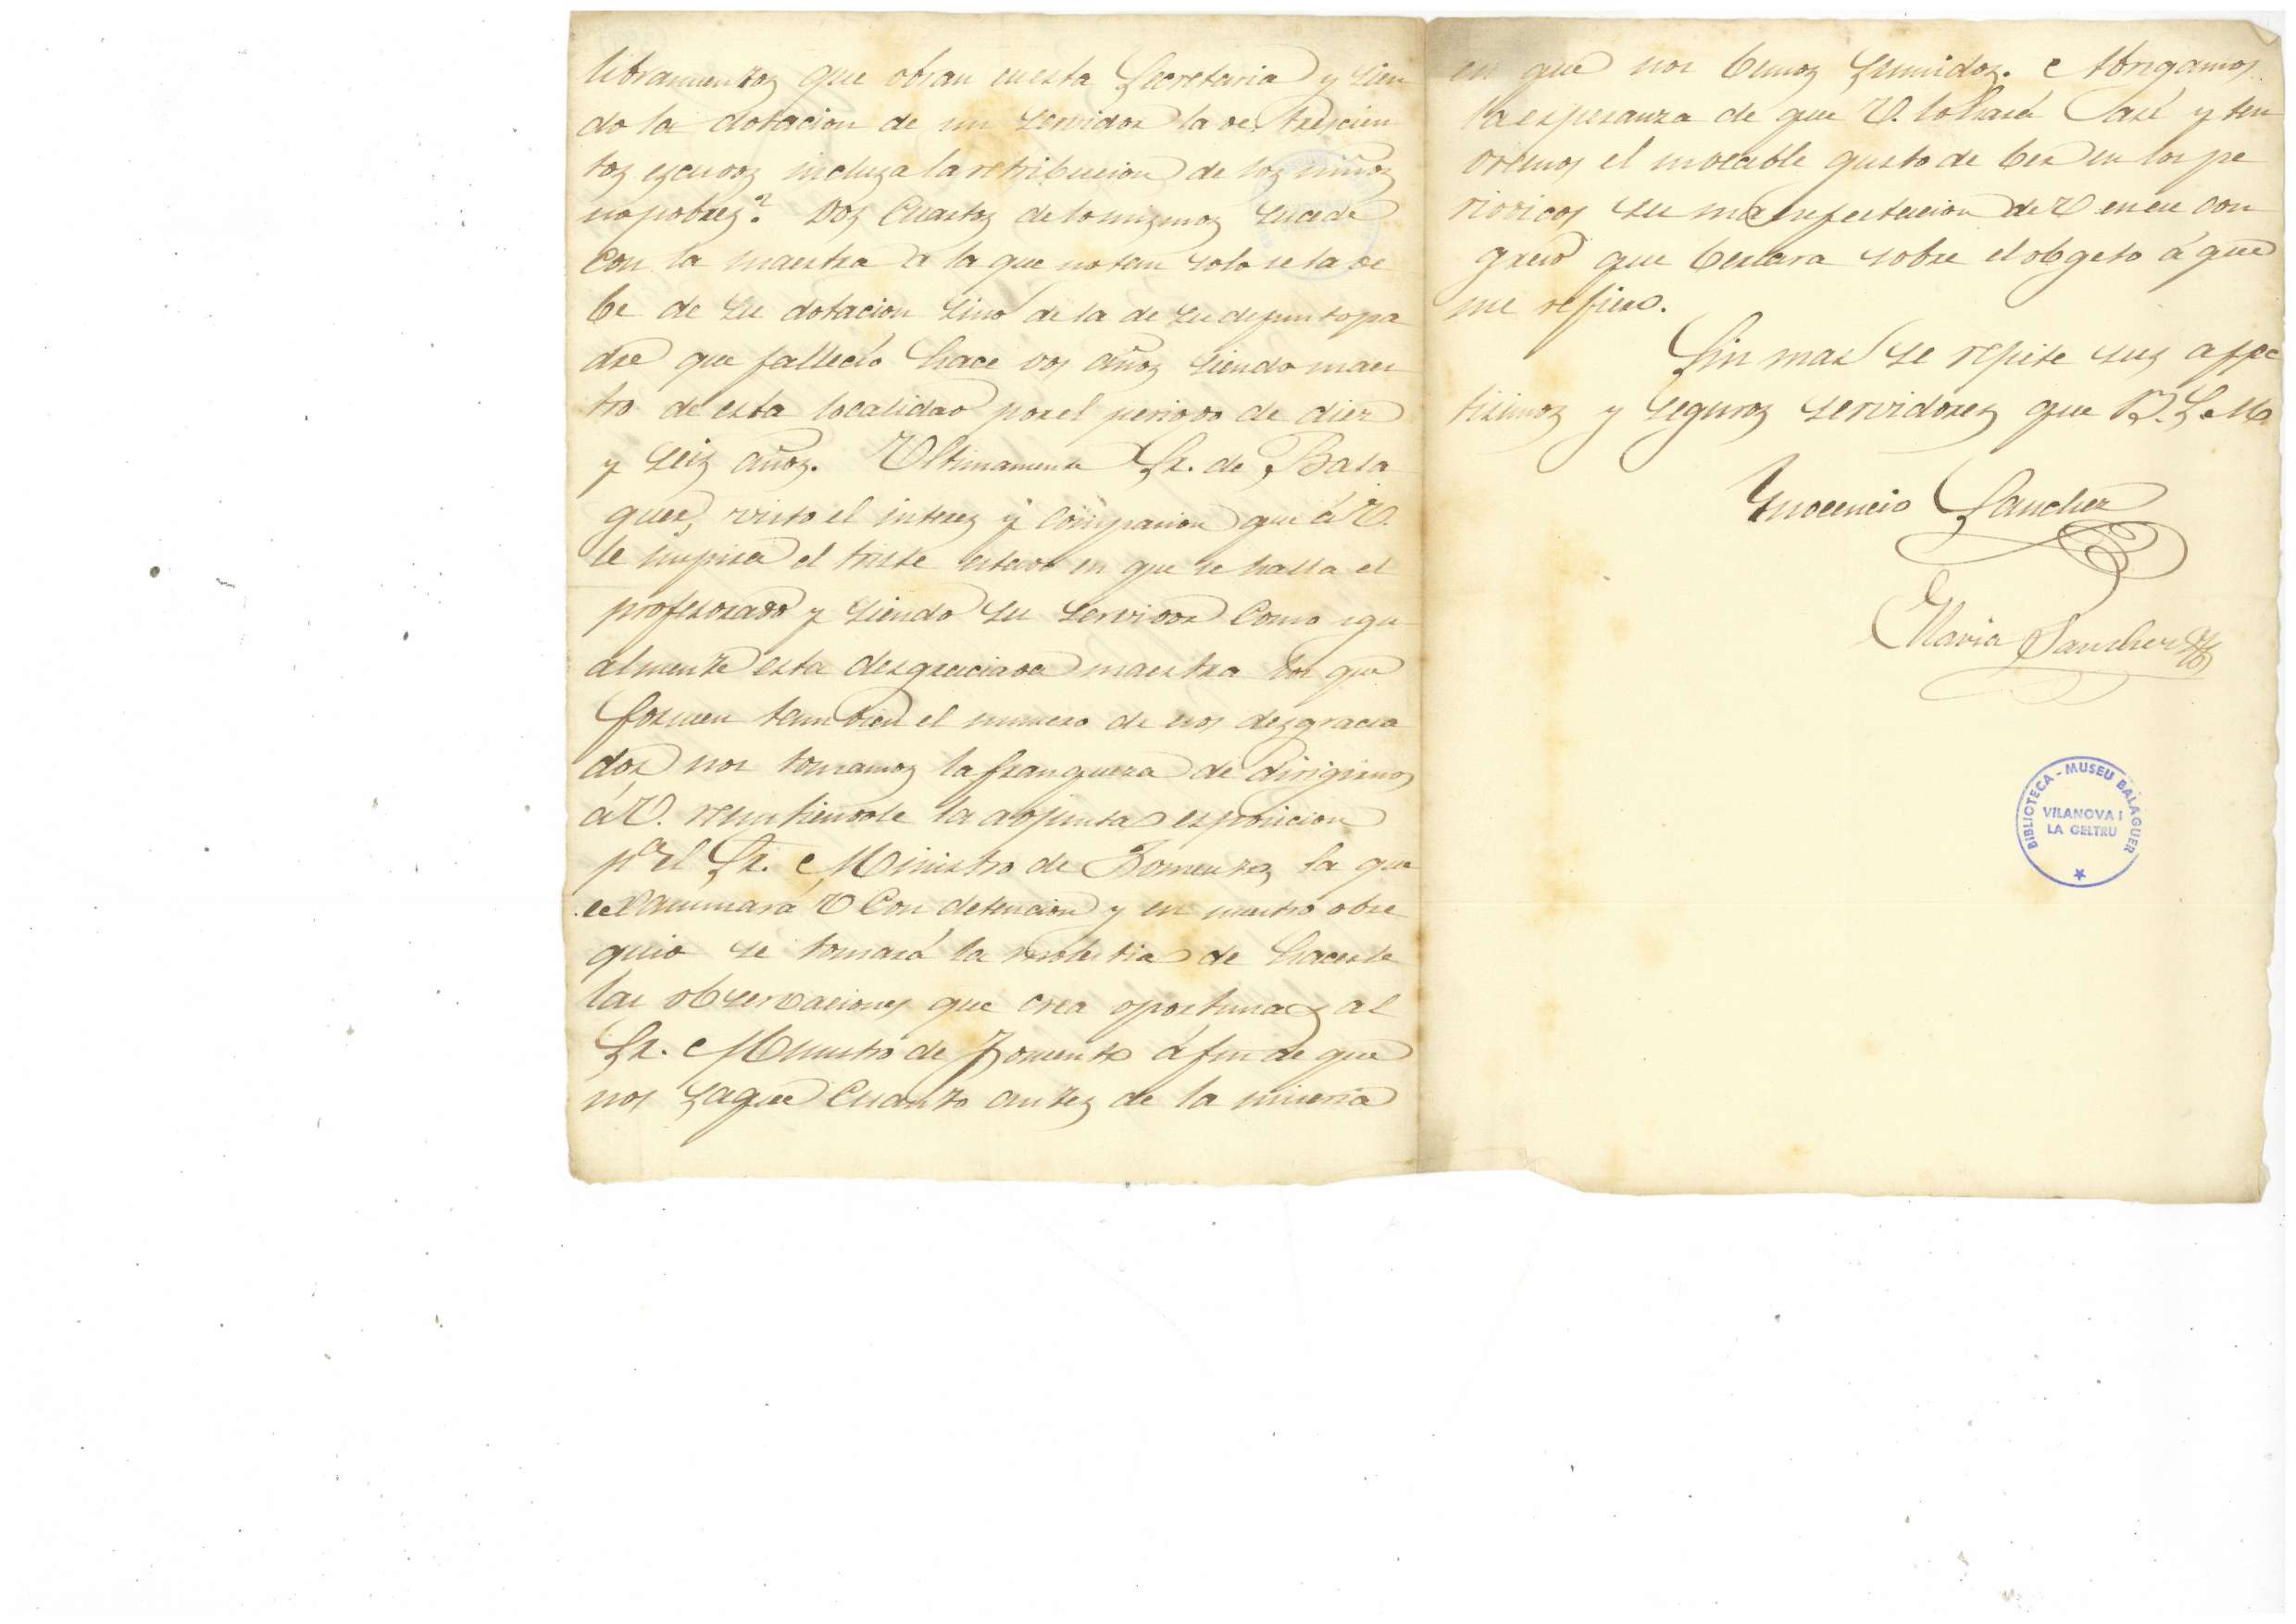 libramientos que obran en esta Secretaria y sien
do la dotacion de un servidor la de trescien
tos escudos inclusa la retribucion de los niños
no pobres? Dos cuartos de lo mismo sucede
con la maestra a la que no tan solo se la de
be de su dotacion sino de la de su defunto pa
dre que fallecio hace dos años siendo maes
tro de esta localidad por el periodo de diez
y seis años. Ultimamente Sr. de Bala
guer, visto el interes y compasion que á V.
le inspira el triste estado en que se halla el
profesorado y siendo su servidor como igu
almente esta desgraciada maestra los que
formen tambien el numero de esos desgracia
dos nos tomamos la franqueza de dirigirnos
á V. remitiendole la adjunta esposicion
pª el Sr. Ministro de Fomento, la que
ecsaminará V con detencion y en nuestro obse
quio se tomará la molestia de hacerle
las observaciones que crea oportunas al
Sr. Ministro de Fomento á fin de que
nos saque cuanto antes de la miseria
en que nos bemos sumidos. Abrigamos
la esperanza de que V. lo hará asi y ten
dremos el gusto de ber en los pe
riodicos su manifestacion de V en ese con
greso que bersara sobre el obgeto á que
me refiero.
Sin mas se repite sus affc
tisimos y seguros servidores que B. S. M
Ynocencio Sanchez
Maria Sanchez
BIBLIOTECA - MUSEU BALAGUER
VILANOVA I
LA GELTRU